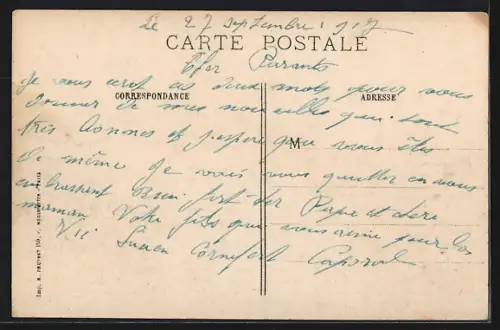 Le 27 Septembre 1917
CARTE POSTALE
Cher Parants
Je vous ecrit ses deux mots pour vous
CORRESPONDANCE
ADRESSE
donner de mes nouvelles qui sont
très bonnes et j'espere que vous êtes
M
de même je vais vous quitter en vous
embrassant bien fort cher Papa et chere
maman Votre fils qui vous aime pour la
Vie
Lucien Caporal